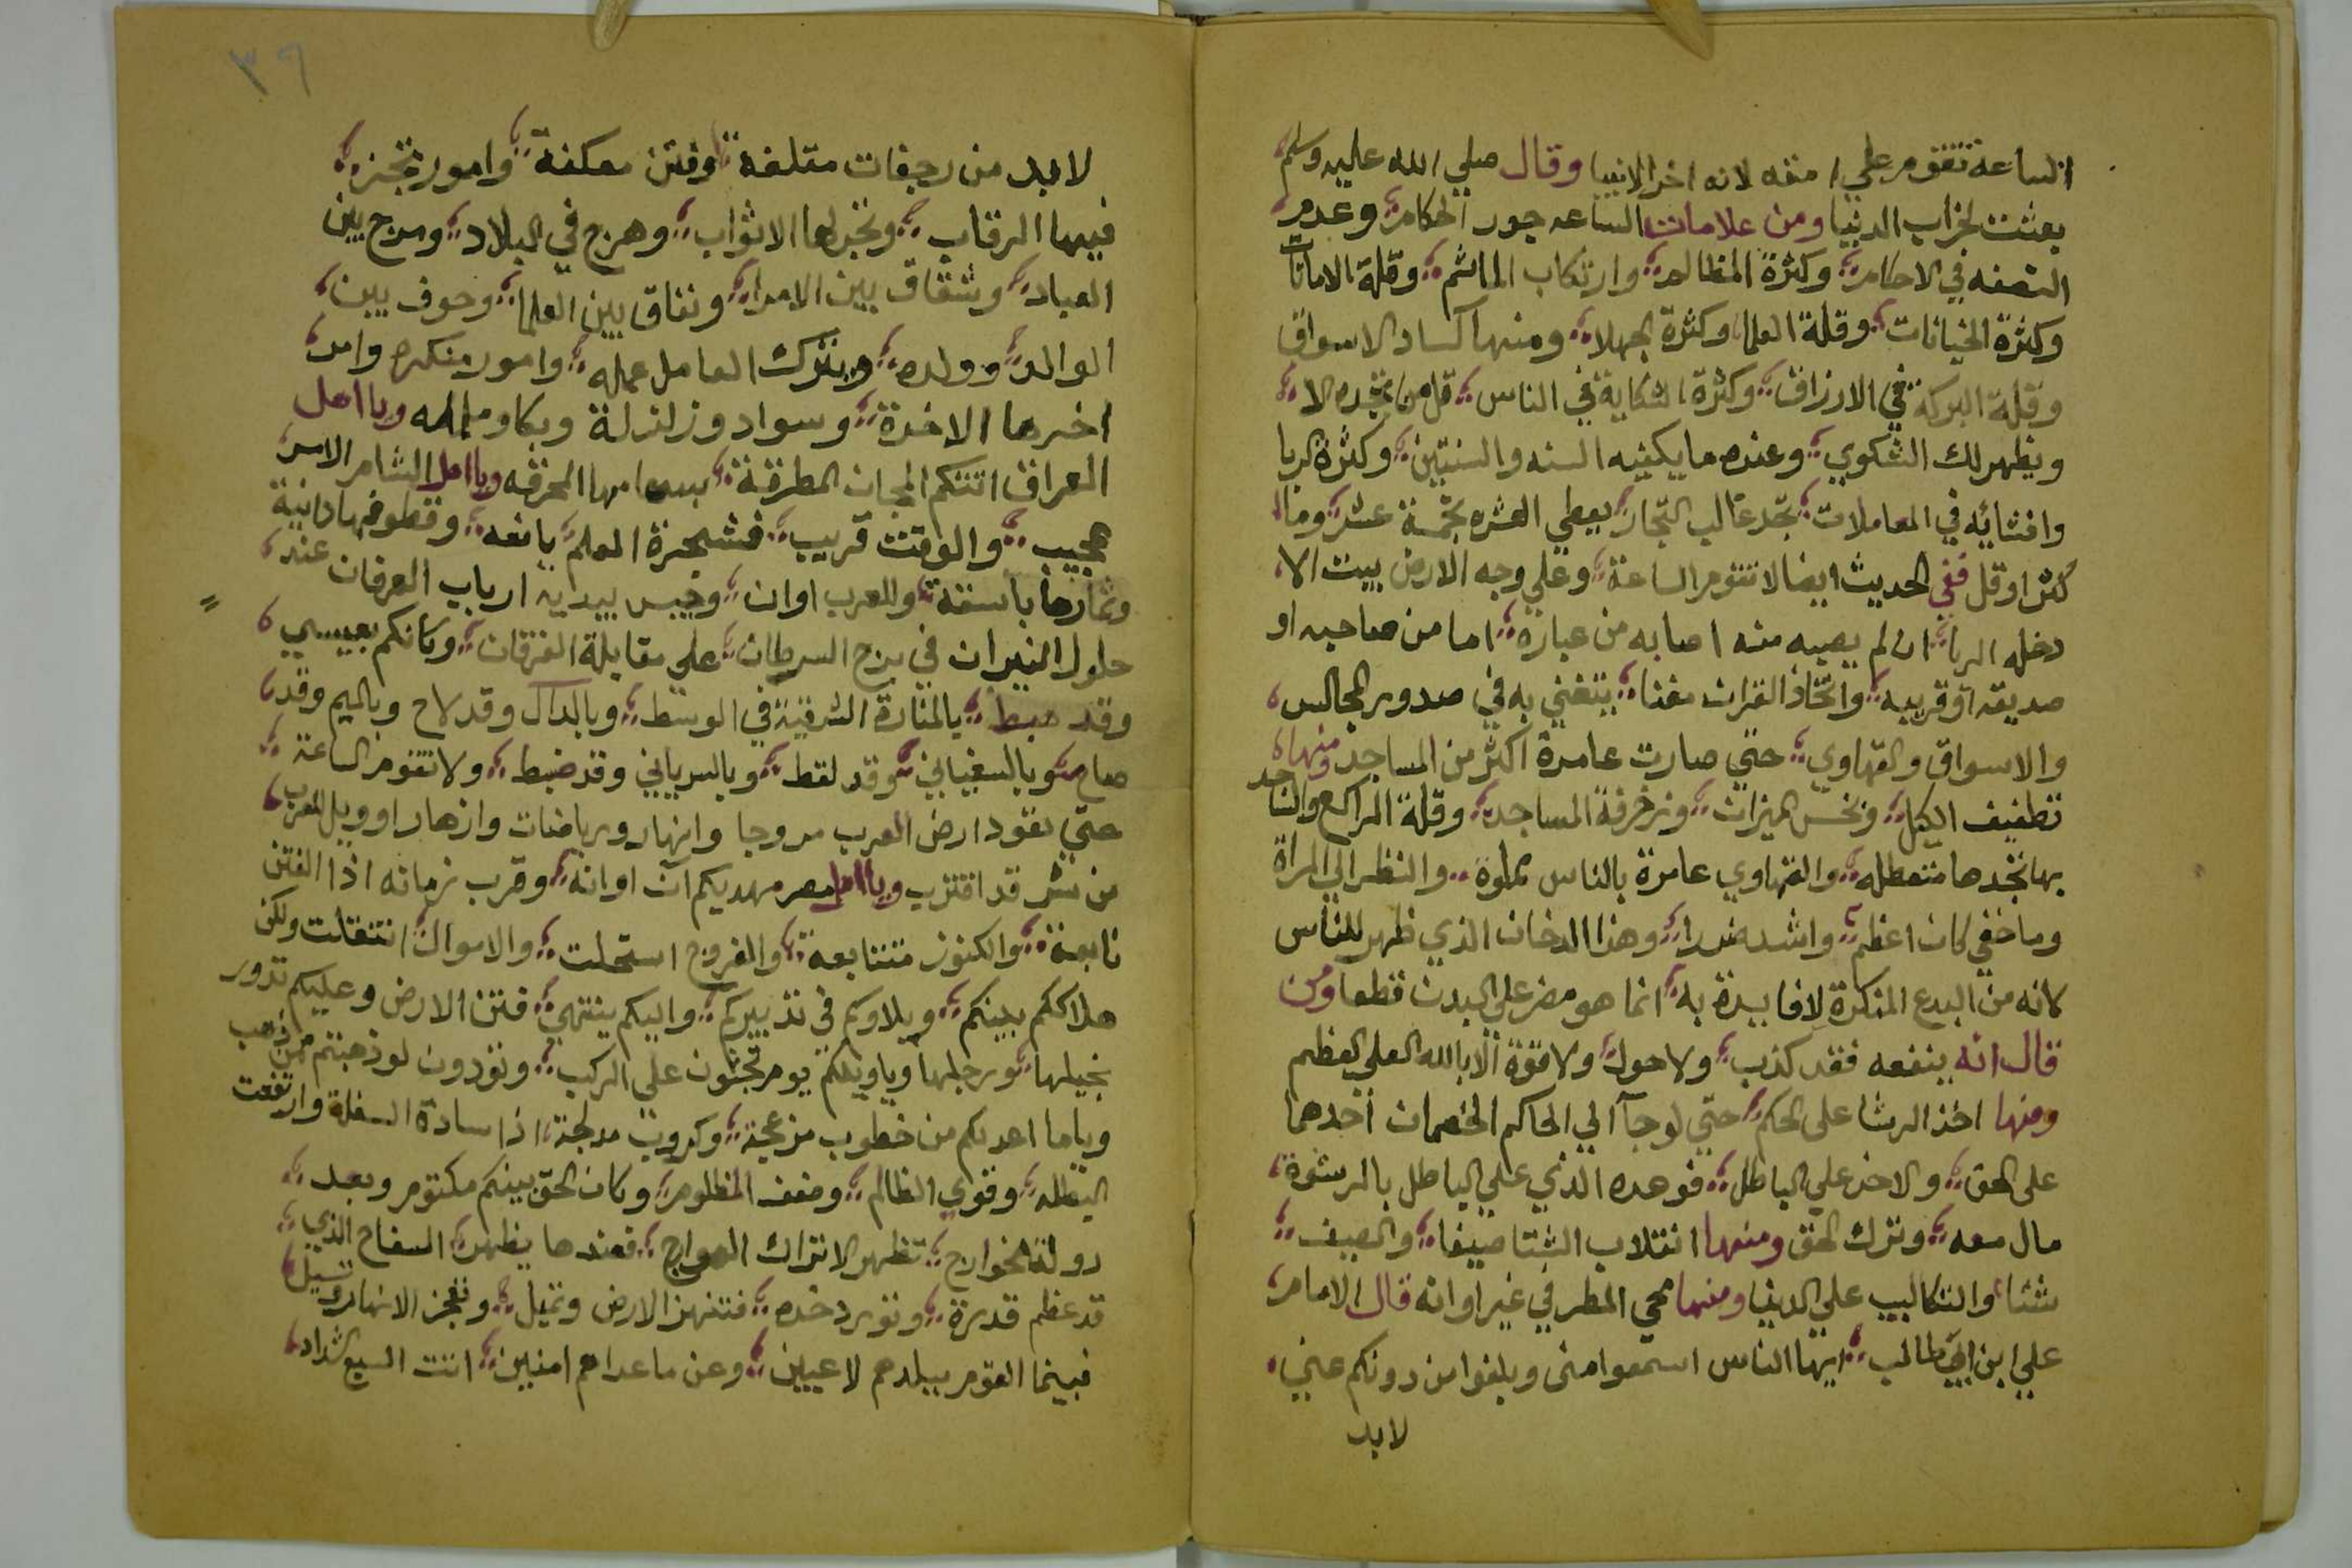 الساعة تقوم علي امته لانه اخر الانبيا وقال صلي الله عليه وسلم
بعثت لخراب الدنيا ومن علامات الساعه جور الحكام وعدم
النصفه في الاحكام وكثرة المظالم وارتكاب الماثم وقلة الامانات
وكثرة الخيانات وقلة العلما وكثرة الجهلا ومنها كساد الاسواق
وقلة البركة في الارزاق وكثرة الشكاية في الناس قل من تجده الا
ويظهر لك الشكوي وعنده ما يكفيه السنه والسنتين وكثرة الربا
وافشائه في المعاملات تجد غالب التجار يعطي العشره بخمسة عشر وما
كثر او قل ففي الحديث ايضا لا تقوم الساعة وعلي وجه الارض بيت الا
دخله الربا ان لم يصيبه منه اصابه من غباره اما من صاحبه او
صديقه او قريبه واتخاذ القران مغنا يتغني به في صدور المجالس
والاسواق والقهاوي حتي صارت عامرة اكثر من المساجد ومنها
تطفيف الكيل وبخس الميزان وزخرفة المساجد وقلة الراكع والساجد
بها تجدها متعطله والقهاوي عامرة بالناس مملوة والنظر الي المراة
وما خفي كان اعظم واشد ضررا وهذا الدخان الذي ظهر للناس
لانه من البدع المنكرة لا فايدة به انما هو مضر علي البدن قطعا ومن
قال انه ينفعه فقد كذب ولا حول ولا قوة الا بالله العلي العظيم
ومنها اخذ الرشا على الحكم حتي لو جآ الي الحاكم الخصمان احدهما
على الحق والاخر علي الباطل فوعده الذي علي الباطل بالرشوة
مال معه وترك الحق ومنها انقلاب الشتا صيفا والصيف
شتا والتكالب علي الدنيا ومنها محي المطر في غير اوانه قال الامام
علي ابن ابي طالب ايها الناس اسمعوا مني وبلغوا من دونكم عني
لابد
٣٩
لابد من رجفات متلفة وفتن معكفة وامور تجز
فيها الرقاب وتخبر لها الاثواب وهرج في البلاد ومرج بين
العباد وشقاق بين الامرا ونفاق بين العلما وخوف بين
الوالد وولده ويترك العامل عمله وامور منكره وامر
اخرها الاخرة وسواد وزلزلة وبكا وملمه ويا اهل
العراق اتتكم المجان المطرقة بسهامها المحرقه ويا اهل الشام الامر
عجيب والوقت قريب فشجرة العلم يانعه وقطوفها دانية
وثمارها باسقة والعرب اوان وخيس بيدايه ارباب العرفان عند
حلول النيران في برج السرطان علي مقابلة الفرقان وكانكم بعيسي
وقد هبط بالمنارة الشرقية في الوسط وبالدآل وقد لاح وبالميم وقد
صاح وبالسفياني وقد لقط وبالسرياني وقد ضبط ولا تقوم الساعة
حتي تعود ارض العرب مروجا وانهار ورياضات وازهارا وويل للعرب
من شر قد اقترب ويا اهل مصر مهديكم آن اوانه وقرب زمانه اذا الفتن
تابعة والكنوز متتابعة والفروج استحلت والاموال انتقلت ولكن
هلاككم بينكم وبلاوكم في تدبيركم واليكم ينتهي فتن الارض وعليكم تدور
بخيلها ورجلها وياويلكم يوم تجثون علي الركب وتودون لو ذهبتم مع من ذهب
ويا ما اعد لكم من خطوب مزعجة وكروب مدلجة اذا سادة السفلة وارتفعت
البطله وقوي الظالم وضعف المظلوم وكان الحق بينكم مكتوم وبعد
دولة الخوارج تظهر الاتراك العواج فعندها يظهر السفاح الذي
قد عظم قدرة وتورد خده فتنهز الارض وتميل وتفجر الانهار تسيل
فبينما القوم ببلدهم لاعبين وعن ما عداهم امنين اتت السبع الشداد